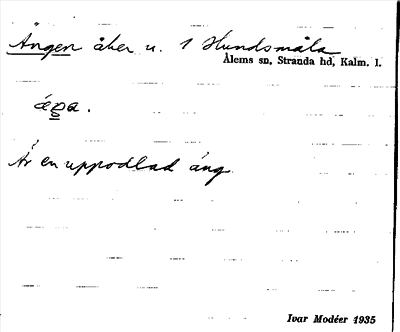 Ängen åker u. 1 Hundsmåla
Ålems sn, Stranda hd, Kalm. l.
Är en uppodlad äng.
Ivar Modéer 1935